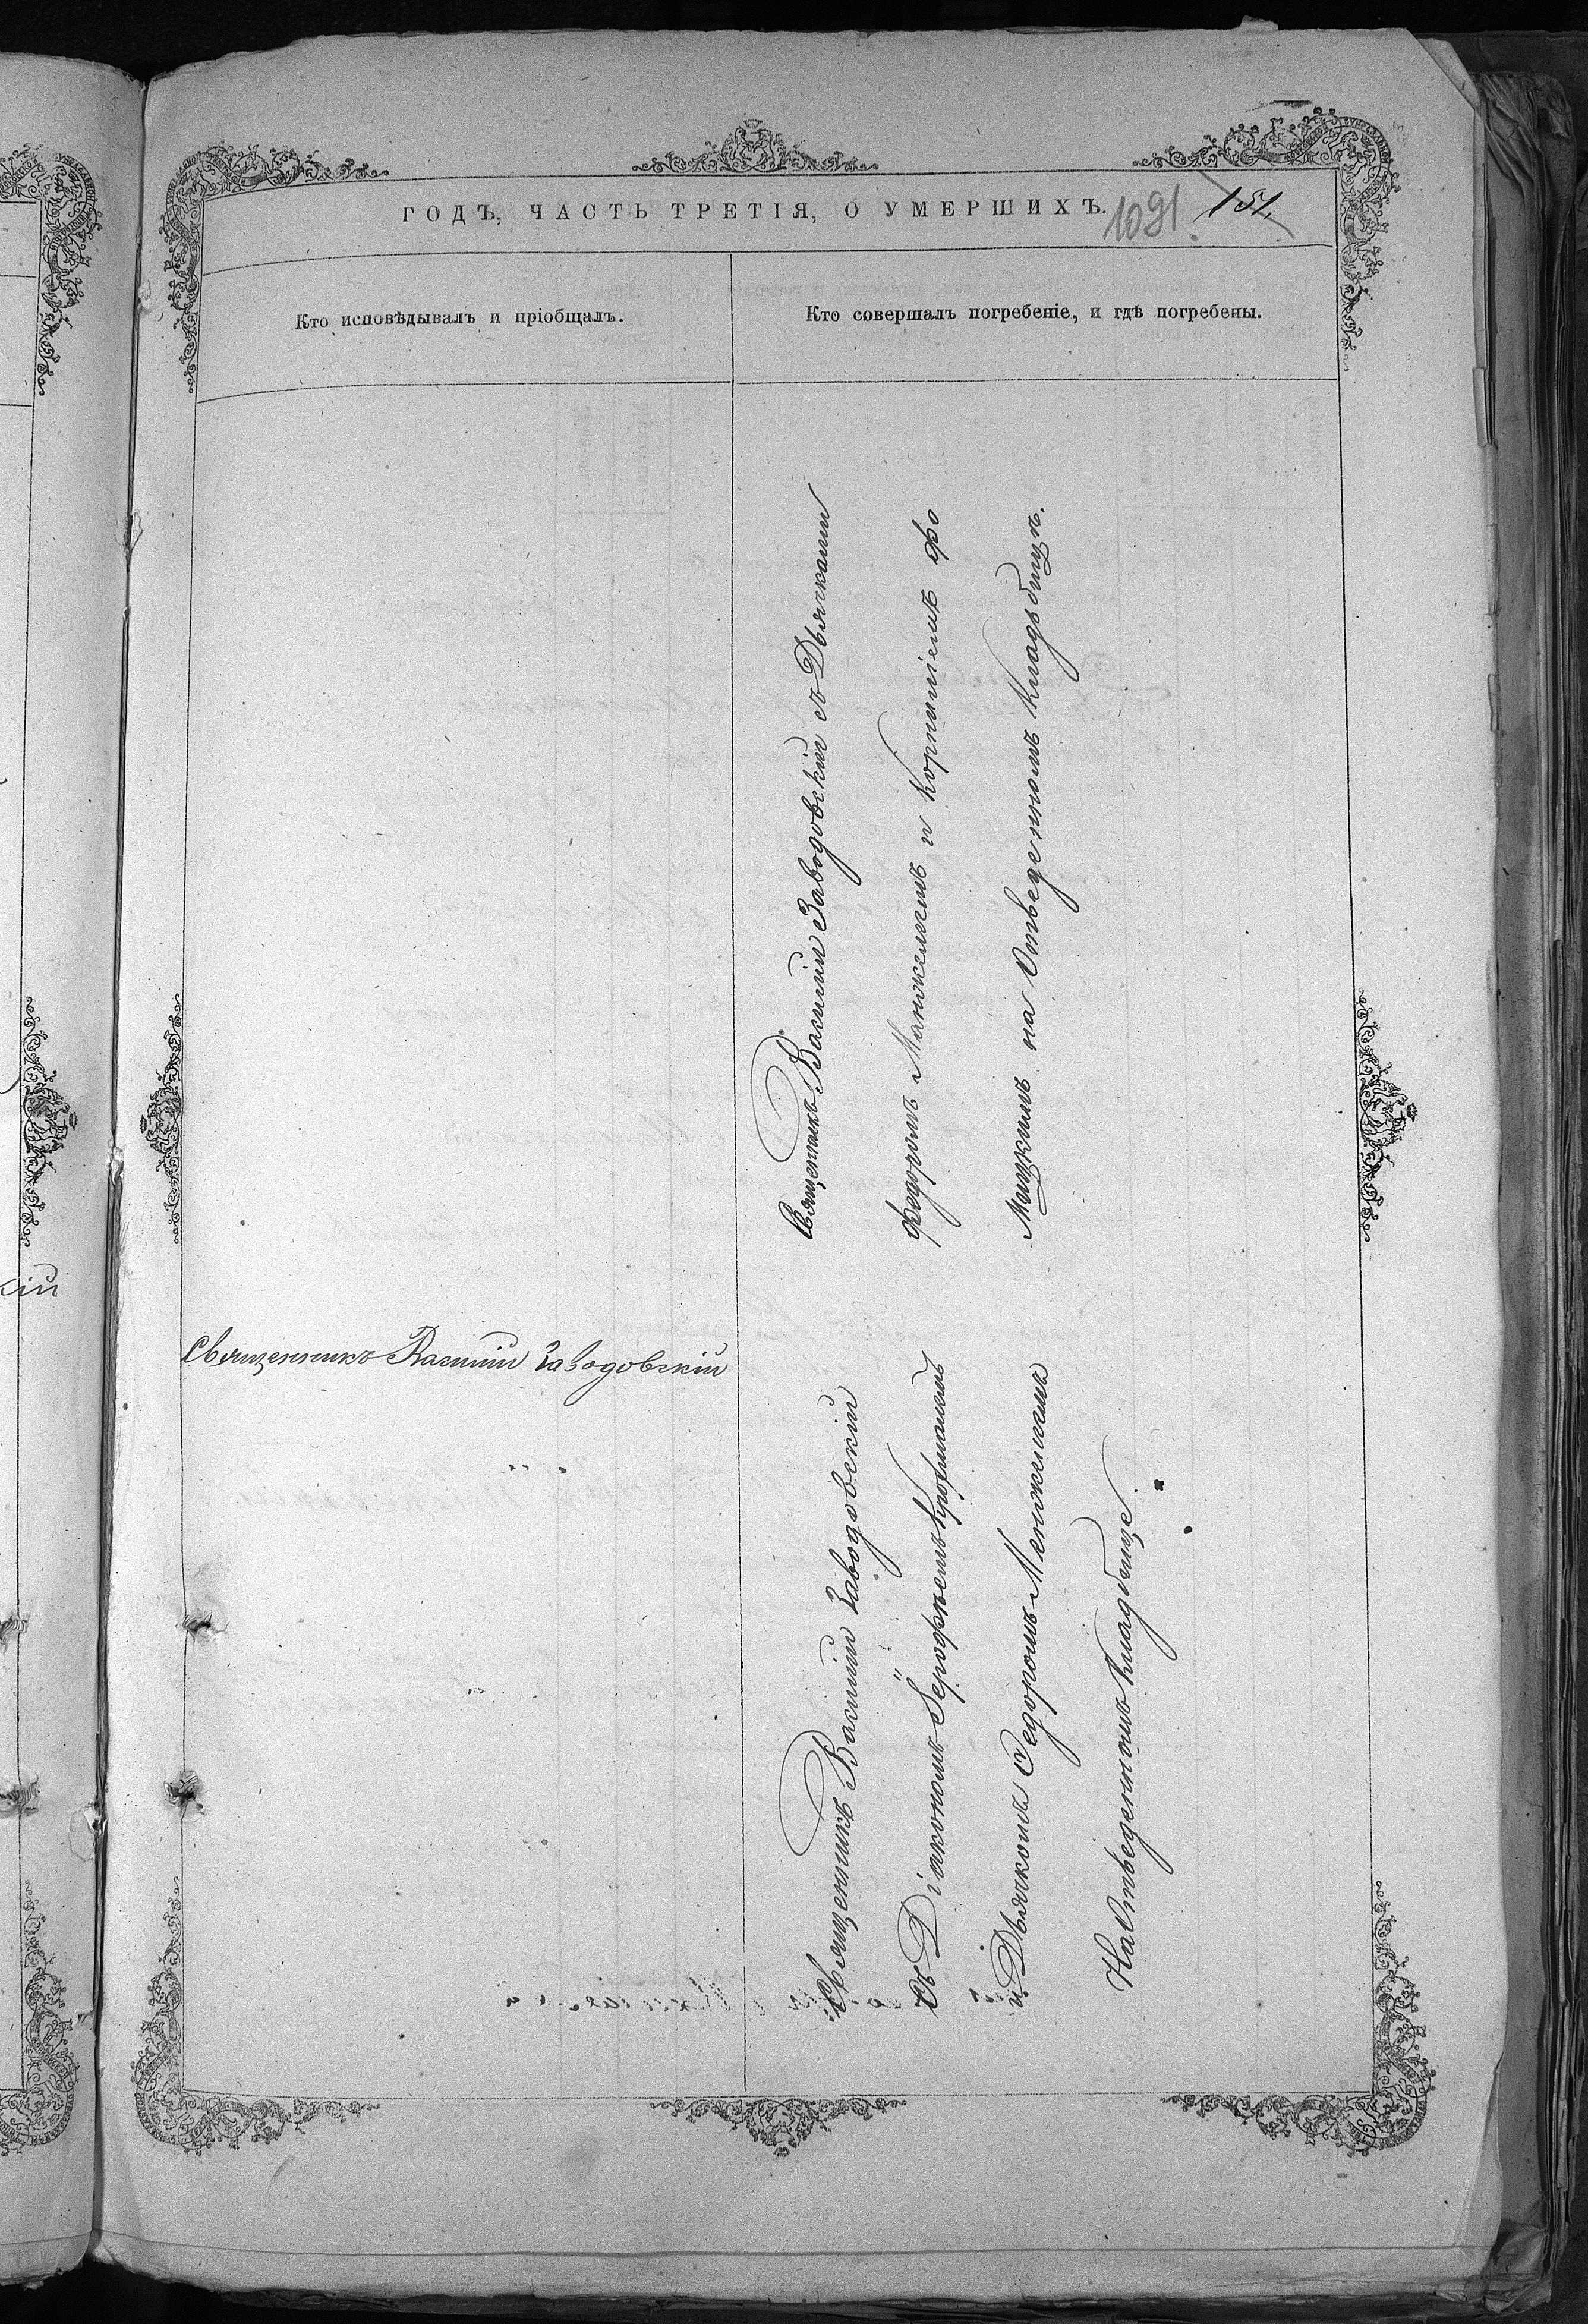 ГОДЪ, ЧАСТЬ ТРЕТІЯ, О УМЕРШИХЪ.
1091
151.
Кто исповѣдывалъ и пріобщалъ.
Кто совершалъ погребеніе, и гдѣ погребены.
Священникъ Василій Заводовскій съ Дьячками
Федоромъ и Корниліемъ
на Отведенномъ Кладбищѣ.
Священникъ Василій Заводовскій
Священникъ Василій Заводовскій
Съ Діакономъ
и Дьячкомъ Федоромъ
На Отведенномъ Кладбище.
кій